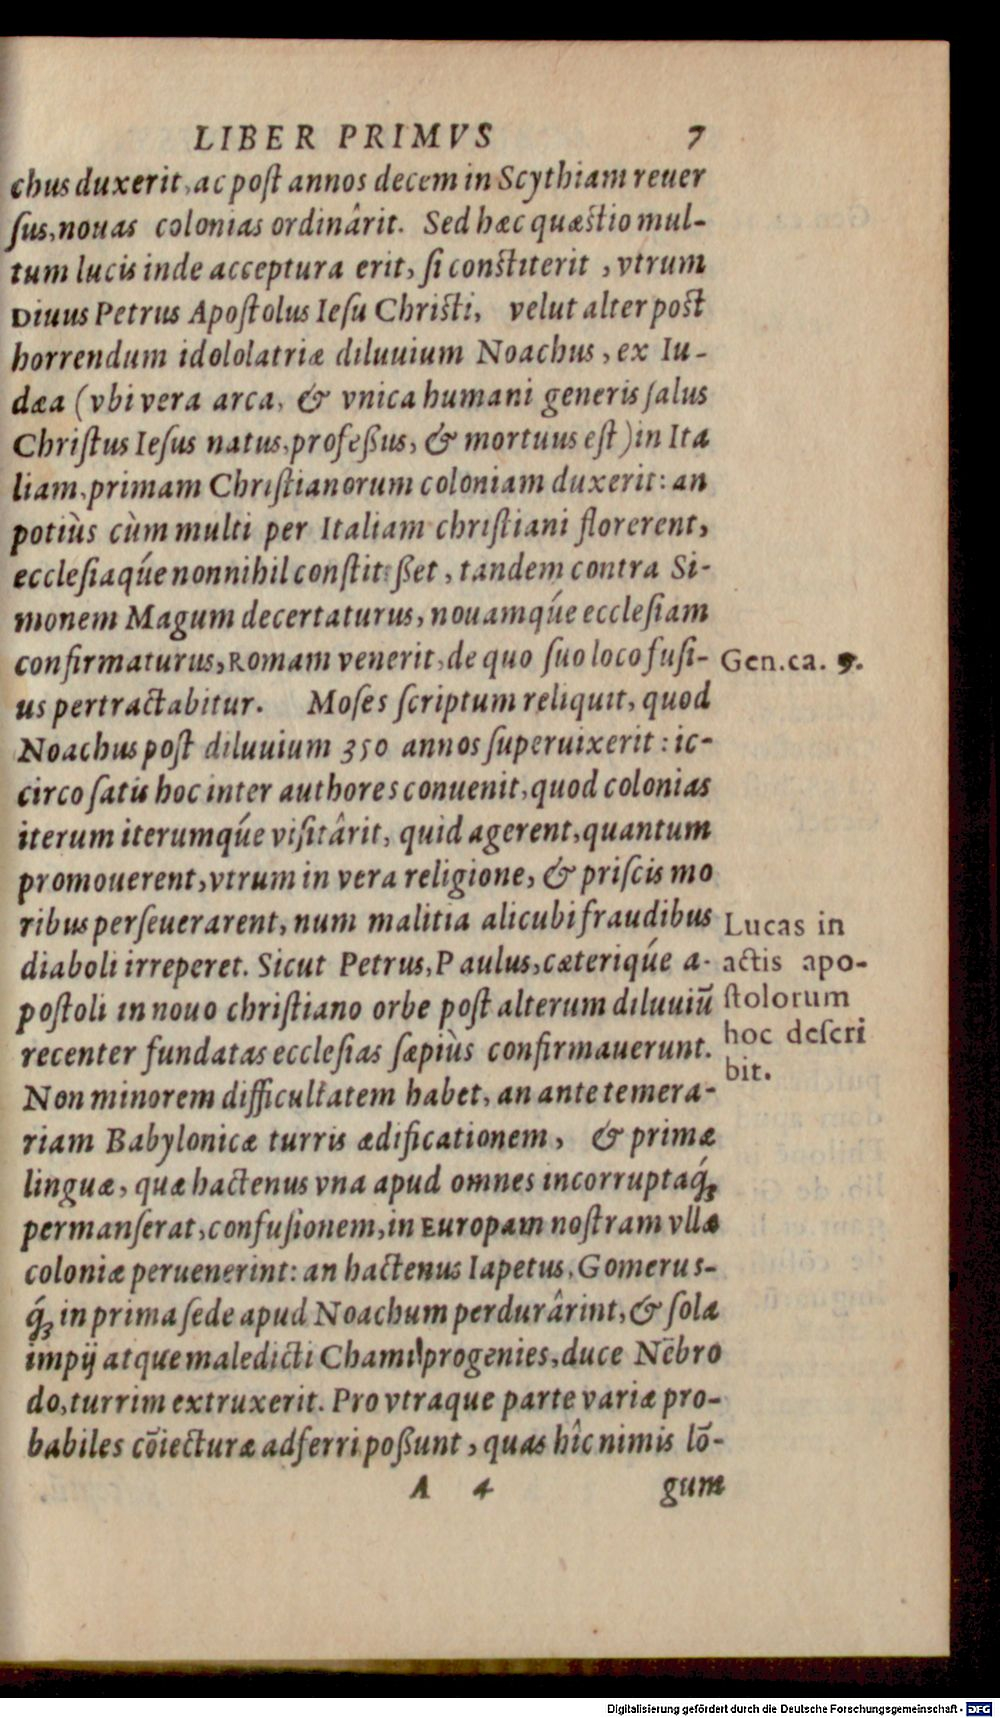 LIBER PRIMVS 7
chus duxerit, ac poſt annos decem in Scythiam reuer
ſus, nouas colonias ordinârit. Sed hæc quæſtio mul-
tum lucis inde acceptura erit, ſi conſtiterit, vtrum
Diuus Petrus Apoſtolus Ieſu Chriſti, velut alter poſt
horrendum idololatriæ diluuium Noachus, ex Iu-
dæa (vbi vera arca, & vnica humani generis ſalus
Chriſtus Ieſus natus, profeßus, & mortuus eſt) in Ita
liam, primam Chriſtianorum coloniam duxerit: an
potiùs cùm multi per Italiam chriſtiani florerent,
eccleſiaq́ue nonnihil conſtitißet, tandem contra Si-
monem Magum decertaturus, nouamq́ue eccleſiam
confirmaturus, Romam venerit, de quo ſuo loco fuſi-
Gen. ca. 9.
us pertractabitur. Moſes ſcriptum reliquit, quod
Noachus poſt diluuium 350 annos ſuperuixerit: ic-
circo ſatis hoc inter authores conuenit, quod colonias
iterum iterumq́ue viſitârit, quid agerent, quantum
promouerent, vtrum in vera religione, & priſcis mo
ribus perſeuerarent, num malitia alicubi fraudibus
diaboli irreperet. Sicut Petrus, Paulus, cæteriq́ue a-
poſtoli in nouo chriſtiano orbe poſt alterum diluuiū
recenter fundatas eccleſias ſæpiùs confirmauerunt.
Lucas in
actis apo-
ſtolorum
hoc deſcri
bit.
Non minorem difficultatem habet, an ante temera-
riam Babylonicæ turris ædificationem, & primæ
linguæ, quæ hactenus vna apud omnes incorruptaq́;
permanſerat, confuſionem, in Europam noſtram vllæ
coloniæ peruenerint: an hactenus Iapetus, Gomerus-
q́; in prima ſede apud Noachum perdurârint, & ſola
impij atque maledicti Chami progenies, duce Nēbro
do, turrim extruxerit. Pro vtraque parte variæ pro-
babiles cōiecturæ adferri poßunt, quas hîc nimis lō-
A 4 gum
Digitalisierung gefördert durch die Deutsche Forschungsgemeinschaft - DFG